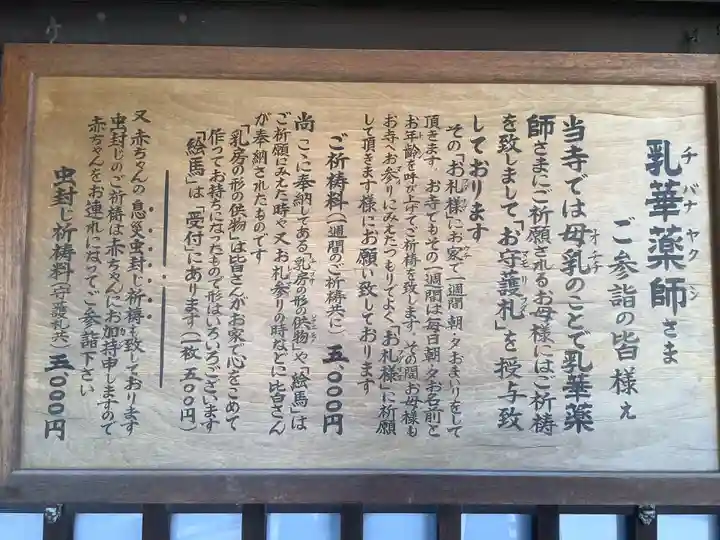 乳華薬師さま
チバナヤクシ
ご参詣の皆様え
当寺では母乳のことで乳華薬
オチチ
師さまにご祈願されるお母様にはご祈祷
を致しまして「お守護札」を授与致
マモリフダ
しております
その「お札様」にお家で一週間、朝・夕おまいりをして
頂きます。お寺でもその一週間は毎日朝・夕お名前と
お年齢を呼び上げてご祈祷を致します。その間お母様も
お寺へお参りにみえたつもりでよく「お札様」に祈願
して頂きます様にお願い致しております
ご祈祷料(一週間のご祈祷共に)五、〇〇〇円
尚 ここに奉納してある「乳房の形の供物」や「絵馬」は
ご祈願にみえた時や又お札参りの時などに皆さん
が奉納されたものです
「乳房の形の供物」は皆さんがお家で心をこめて
作ってお持ちになったもので形はいろいろございます
「絵馬」は「受付」にあります(一枚 五〇〇円)
又 赤ちゃんの息災虫封じ祈祷も致しております
虫封じのご祈祷は赤ちゃんにお加持申しますので
赤ちゃんをお連れになってご参詣下さい
虫封じ祈祷料(守護札共)五、〇〇〇円